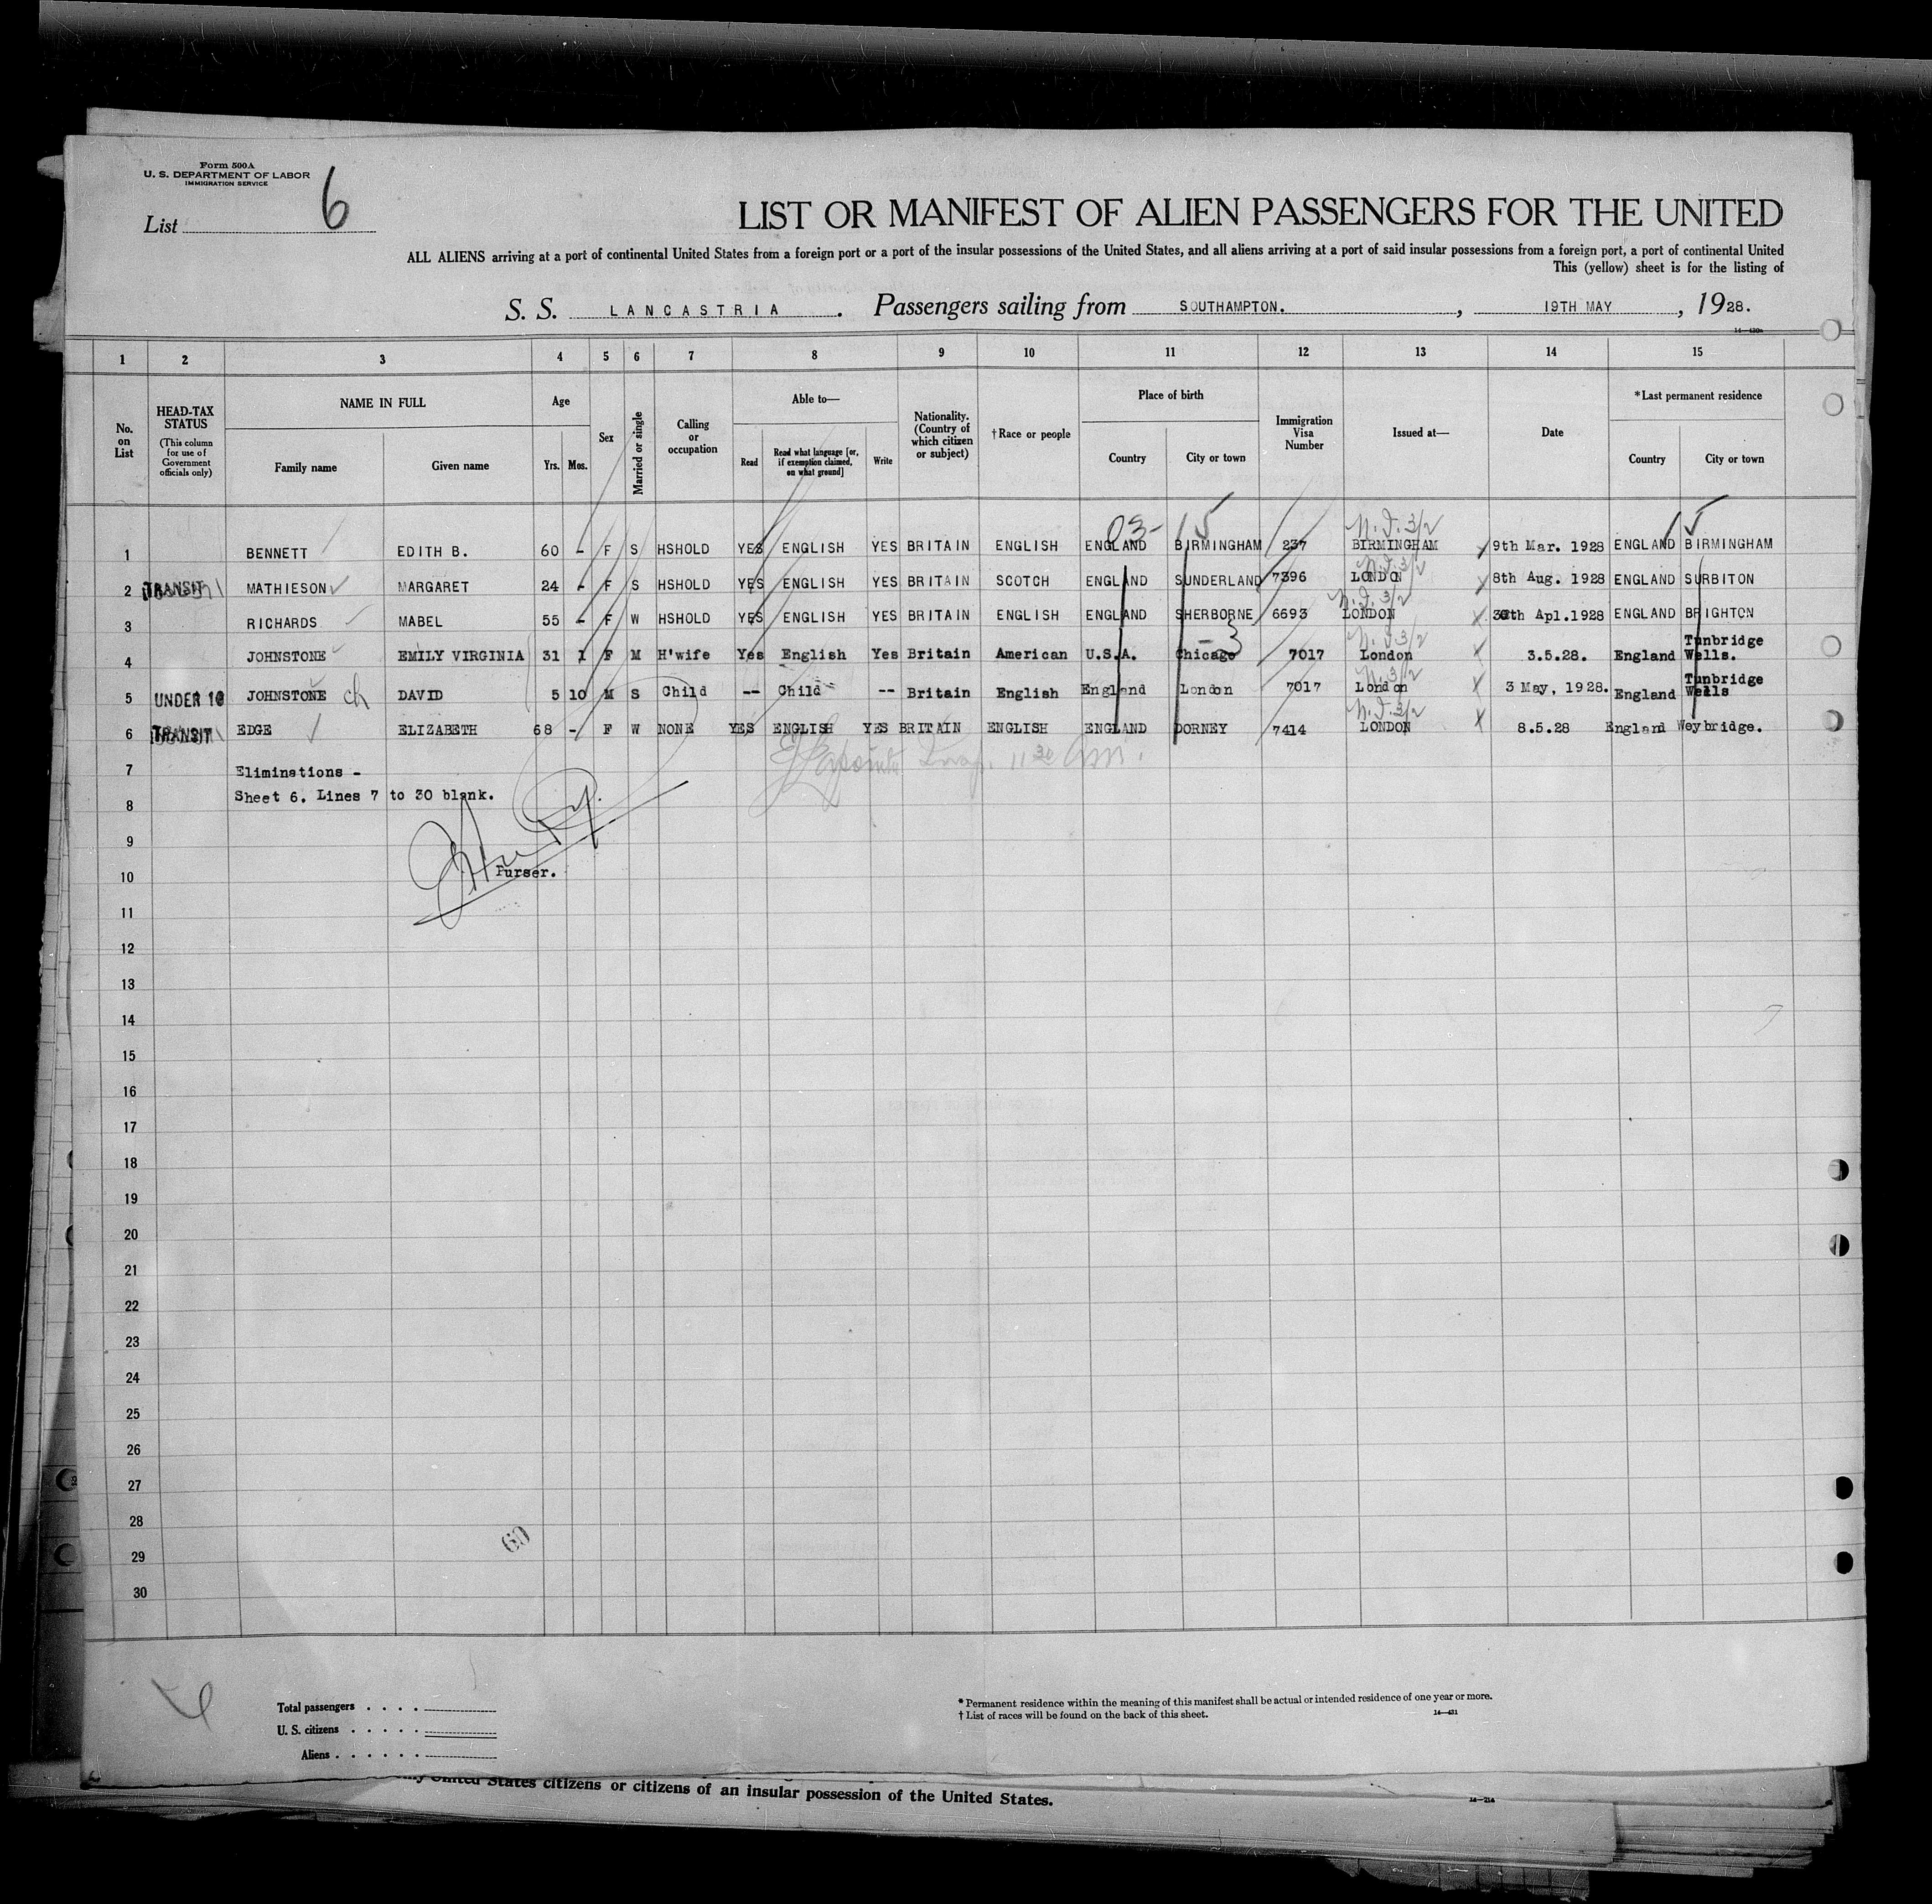 Form 500A
U. S. DEPARTMENT OF LABOR
IMMIGRATION SERVICE
List 6
LIST OR MANIFEST OF ALIEN PASSENGERS FOR THE UNITED
ALL ALIENS arriving at a port of continental United States from a foreign port or a port of the insular possessions of the United States, and all aliens arriving at a port of said insular possessions from a foreign port, a port of continental United
This (yellow) sheet is for the listing of
S. S. LANCASTRIA. Passengers sailing from SOUTHAMPTON., 19TH MAY, 1928.
14—430a
1 2 3 4 5 6 7 8 9 10 11 12 13 14 15
No. on List
HEAD-TAX STATUS (This column for use of Government officials only)
NAME IN FULL
Family name Given name
Age
Yrs. Mos.
Sex
Married or single
Calling or occupation
Able to—
Read Read what language [or, if exemption claimed, on what ground] Write
Nationality. (Country of which citizen or subject)
†Race or people
Place of birth
Country City or town
Immigration Visa Number
Issued at—
Date
*Last permanent residence
Country City or town
03- 15 N.I. 3/2 15
1 BENNETT EDITH B. 60 - F S HSHOLD YES ENGLISH YES BRITAIN ENGLISH ENGLAND BIRMINGHAM 237 BIRMINGHAM 9th Mar. 1928 ENGLAND BIRMINGHAM
N.I. 3/2
2 TRANSIT MATHIESON MARGARET 24 - F S HSHOLD YES ENGLISH YES BRITAIN SCOTCH ENGLAND SUNDERLAND 7396 LONDON 8th Aug. 1928 ENGLAND SURBITON
N.I. 3/2
3 RICHARDS MABEL 55 - F W HSHOLD YES ENGLISH YES BRITAIN ENGLISH ENGLAND SHERBORNE 6693 LONDON 30th Apl.1928 ENGLAND BRIGHTON
N.I. 3/2
4 JOHNSTONE EMILY VIRGINIA 31 1 F M H'wife Yes English Yes Britain American U.S.A. Chicago 7017 London 3.5.28. England Tunbridge Wells.
N. 3/2
5 UNDER 16 JOHNSTONE ch DAVID 5 10 M S Child -- Child -- Britain English England London 7017 London 3 May, 1928. England Tunbridge Wells
N.I. 3/2
6 TRANSIT EDGE ELIZABETH 68 - F W NONE YES ENGLISH YES BRITAIN ENGLISH ENGLAND DORNEY 7414 LONDON 8.5.28 England Weybridge.
7 Eliminations -
8 Sheet 6. Lines 7 to 30 blank.
9
10 Purser.
11
12
13
14
15
16
17
18
19
20
21
22
23
24
25
26
27
28
29
30
60
Total passengers
U. S. citizens
Aliens
* Permanent residence within the meaning of this manifest shall be actual or intended residence of one year or more.
† List of races will be found on the back of this sheet.
14—431
United States citizens or citizens of an insular possession of the United States.
14—214